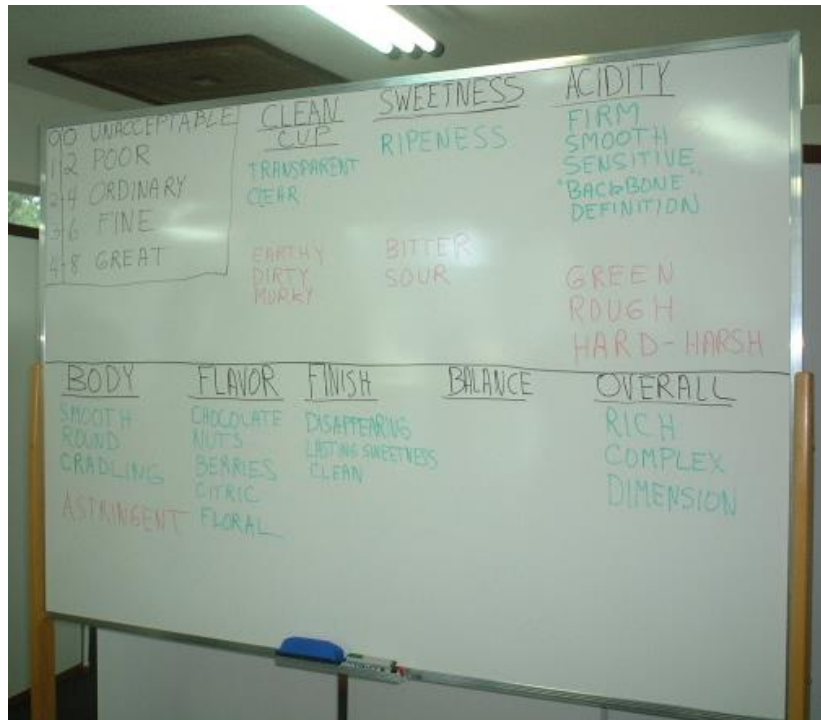 0 0 UNACCEPTABLE
1 2 POOR
2 4 ORDINARY
3 6 FINE
4 8 GREAT
CLEAN
CUP
TRANSPARENT
CLEAR
EARTHY
DIRTY
MURKY
SWEETNESS
RIPENESS
BITTER
SOUR
ACIDITY
FIRM
SMOOTH
SENSITIVE
"BACKBONE"
DEFINITION
GREEN
ROUGH
HARD-HARSH
BODY
SMOOTH
ROUND
CRADLING
ASTRINGENT
FLAVOR
CHOCOLATE
NUTS
BERRIES
CITRIC
FLORAL
FINISH
DISAPPEARING
LASTING SWEETNESS
CLEAN
BALANCE
OVERALL
RICH
COMPLEX
DIMENSION